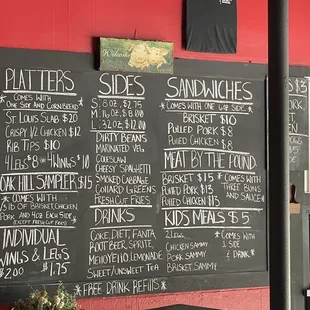 Welcome
PLATTERS
*COMES WITH*
ONE SIDE AND CORNBREAD
ST LOUIS SLAB $20
CRISPY 1/2 CHICKEN $12
RIB TIPS $10
4 LEGS $8 OR 4 WINGS $10
OAK HILL SAMPLER $15
*COMES WITH*
EXCEPT FRIES CUT FRIES
INDIVIDUAL
WINGS & LEGS
$2.00 $1.75
SIDES
S. 8 OZ., $2.75
M. 16 OZ. $8.00
L. 32 OZ. $12.00
DIRTY BEANS
MARINATED VEG.
COLESLAW
CHEESY SPAGHETTI
SMOKED CABBAGE
COLLARD GREENS
FRESH CUT FRIES
DRINKS
COKE, DIET, FANTA
ROOT BEER, SPRITE
MELLO YELLO, LEMONADE
SWEET/UNSWEET TEA
*FREE DRINK REFILLS*
SANDWICHES
*COMES WITH ONE 4OZ SIDE*
BRISKET $10
PULLED PORK $8
PULLED CHICKEN $8
MEAT BY THE POUND
BRISKET $15
PULLED PORK $13
PULLED CHICKEN $13
*COMES WITH
THREE BUNS
AND SAUCE*
KIDS MEALS $5
2 LEGS
CHICKEN SAMMY
PORK SAMMY
BRISKET SAMMY
*COMES WITH
1 SIDE
& DRINK*